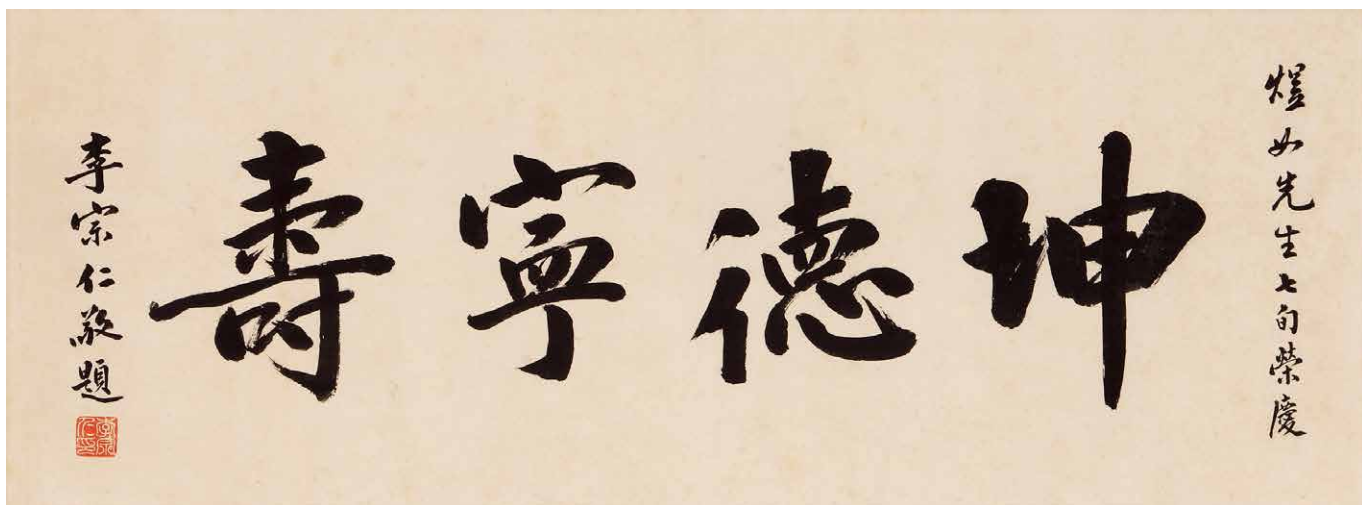 煜如先生七旬榮慶
坤德寧壽
李宗仁敬題
李宗仁印